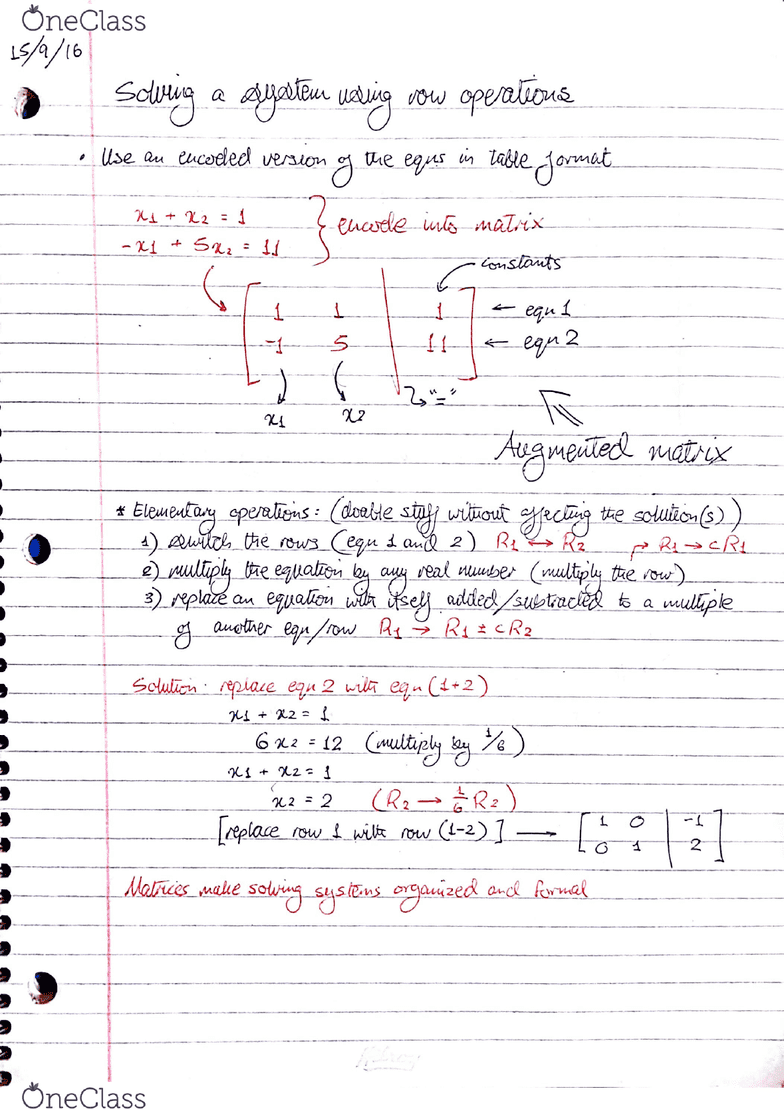 OneClass
15/9/16
Solving a system using row operations
• Use an encoded version of the equs in table format
x1 + x2 = 1
-x1 + 5x2 = 11
} encode into matrix
constants
1 1 | 1 ← equ 1
-1 5 | 11 ← equ 2
x1 x2 "="
Augmented matrix
* Elementary operations: (doable stuff without affecting the solution(s))
1) switch the rows (equ 1 and 2) R1 ↔ R2 R1 → cR1
2) multiply the equation by any real number (multiply the row)
3) replace an equation with itself added/subtracted to a multiple
of another equ/row R1 → R1 ± cR2
Solution: replace equ 2 with equ (1+2)
x1 + x2 = 1
6x2 = 12 (multiply by 1/6)
x1 + x2 = 1
x2 = 2 (R2 → 1/6 R2)
[replace row 1 with row (1-2)] → [1 0 | -1
0 1 | 2]
Matrices make solving systems organized and formal
OneClass